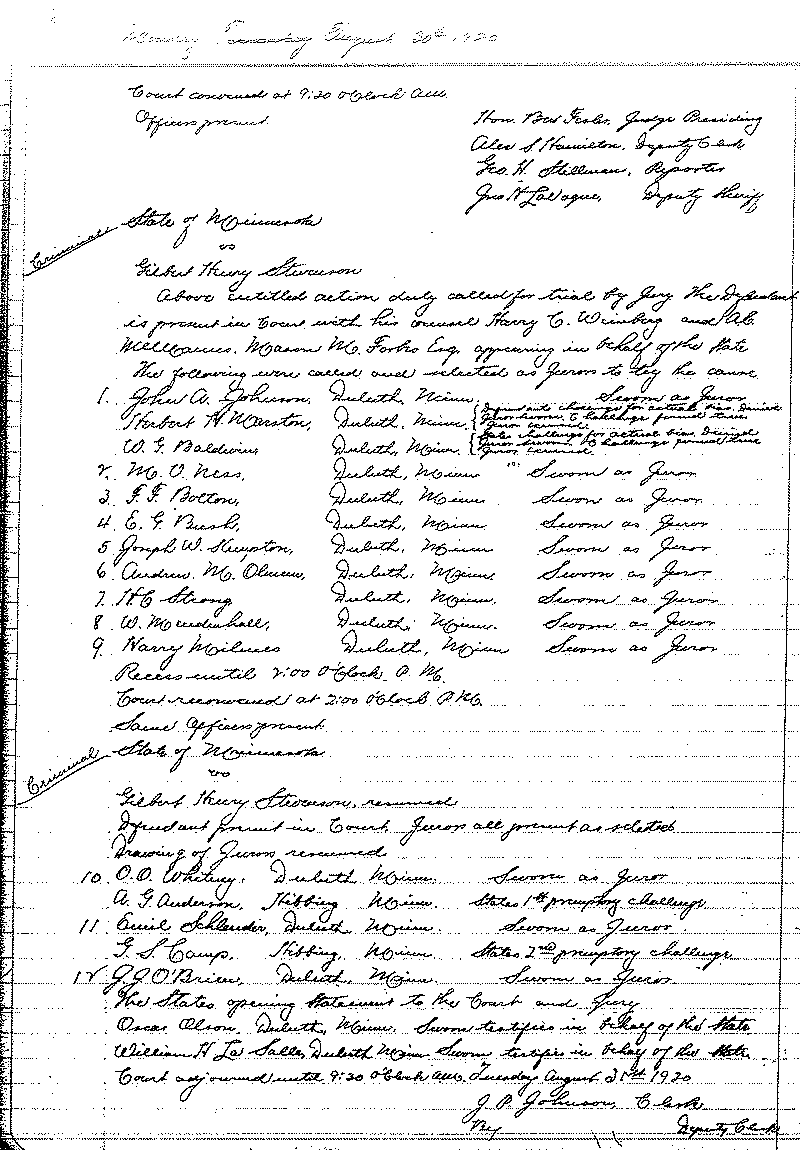 Monday, Tuesday August 30th 1920
Court convened at 9:30 O'Clock A.M.
Officers present
Hon. Bert Fesler, Judge Presiding
Alex S Hamilton, Deputy Clerk
Geo. H. Stillman, Reporter
Jno H LaVaque, Deputy Sheriff
Criminal
State of Minnesota
vs
Gilbert Henry Stevenson
Above entitled action duly called for trial by Jury The Defendant
is present in Court with his counsel Harry C. Weinberg and
Mason M. Forbes Esq. appearing in behalf of the State
The following were called and selected as Jurors to try the cause
1. John A. Johnson, Duluth, Minn. Sworn as Juror
Herbert H. Marston, Duluth, Minn. { Defendants challenge for actual bias. Denied
Juror sworn, challenge found true
Juror excused.
W. G. Baldwin, Duluth, Minn. { States challenge for actual bias. Denied
Juror sworn. challenge found true
Juror excused.
2. M. O. Ness, Duluth, Minn "" Sworn as Juror
3. F. F. Bolton, Duluth, Minn Sworn as Juror
4 E. G. Bush, Duluth, Minn. Sworn as Juror
5 Joseph W. Shempton, Duluth, Minn Sworn as Juror
6 Andrew. M. Olmem, Duluth, Minn. Sworn as Juror
7. H C Strong Duluth, Minn. Sworn as Juror
8 W. Mendenhall, Duluth, Minn. Sworn as Juror
9 Harry Milnes Duluth, Minn Sworn as Juror
Recess until 2:00 O'Clock P. M.
Court reconvened at 2:00 O'Clock P.M.
Same Officers present
Criminal
State of Minnesota
vs
Gilbert Henry Stevenson, resumed
Defendant present in Court. Jurors all present as selected
Drawing of Jurors resumed
10. O.O. Whitney, Duluth Minn. Sworn as Juror
A. G. Anderson, Hibbing Minn. States 1st premptory challenge
11 Emil Schlender, Duluth Minn. Sworn as Juror
G. S. Camp, Hibbing, Minn States 2nd premptory challenge
12 J. J. O'Brien, Duluth, Minn. Sworn as Juror
The States opening statement to the Court and Jury
Oscar Olson, Duluth, Minn. Sworn testifies in behalf of the State
William H La Salle, Duluth Minn Sworn testifies in behalf of the State
Court adjourned until 9:30 O'Clock A.M. Tuesday August 31st 1920
J. P. Johnson, Clerk
By Deputy Clerk